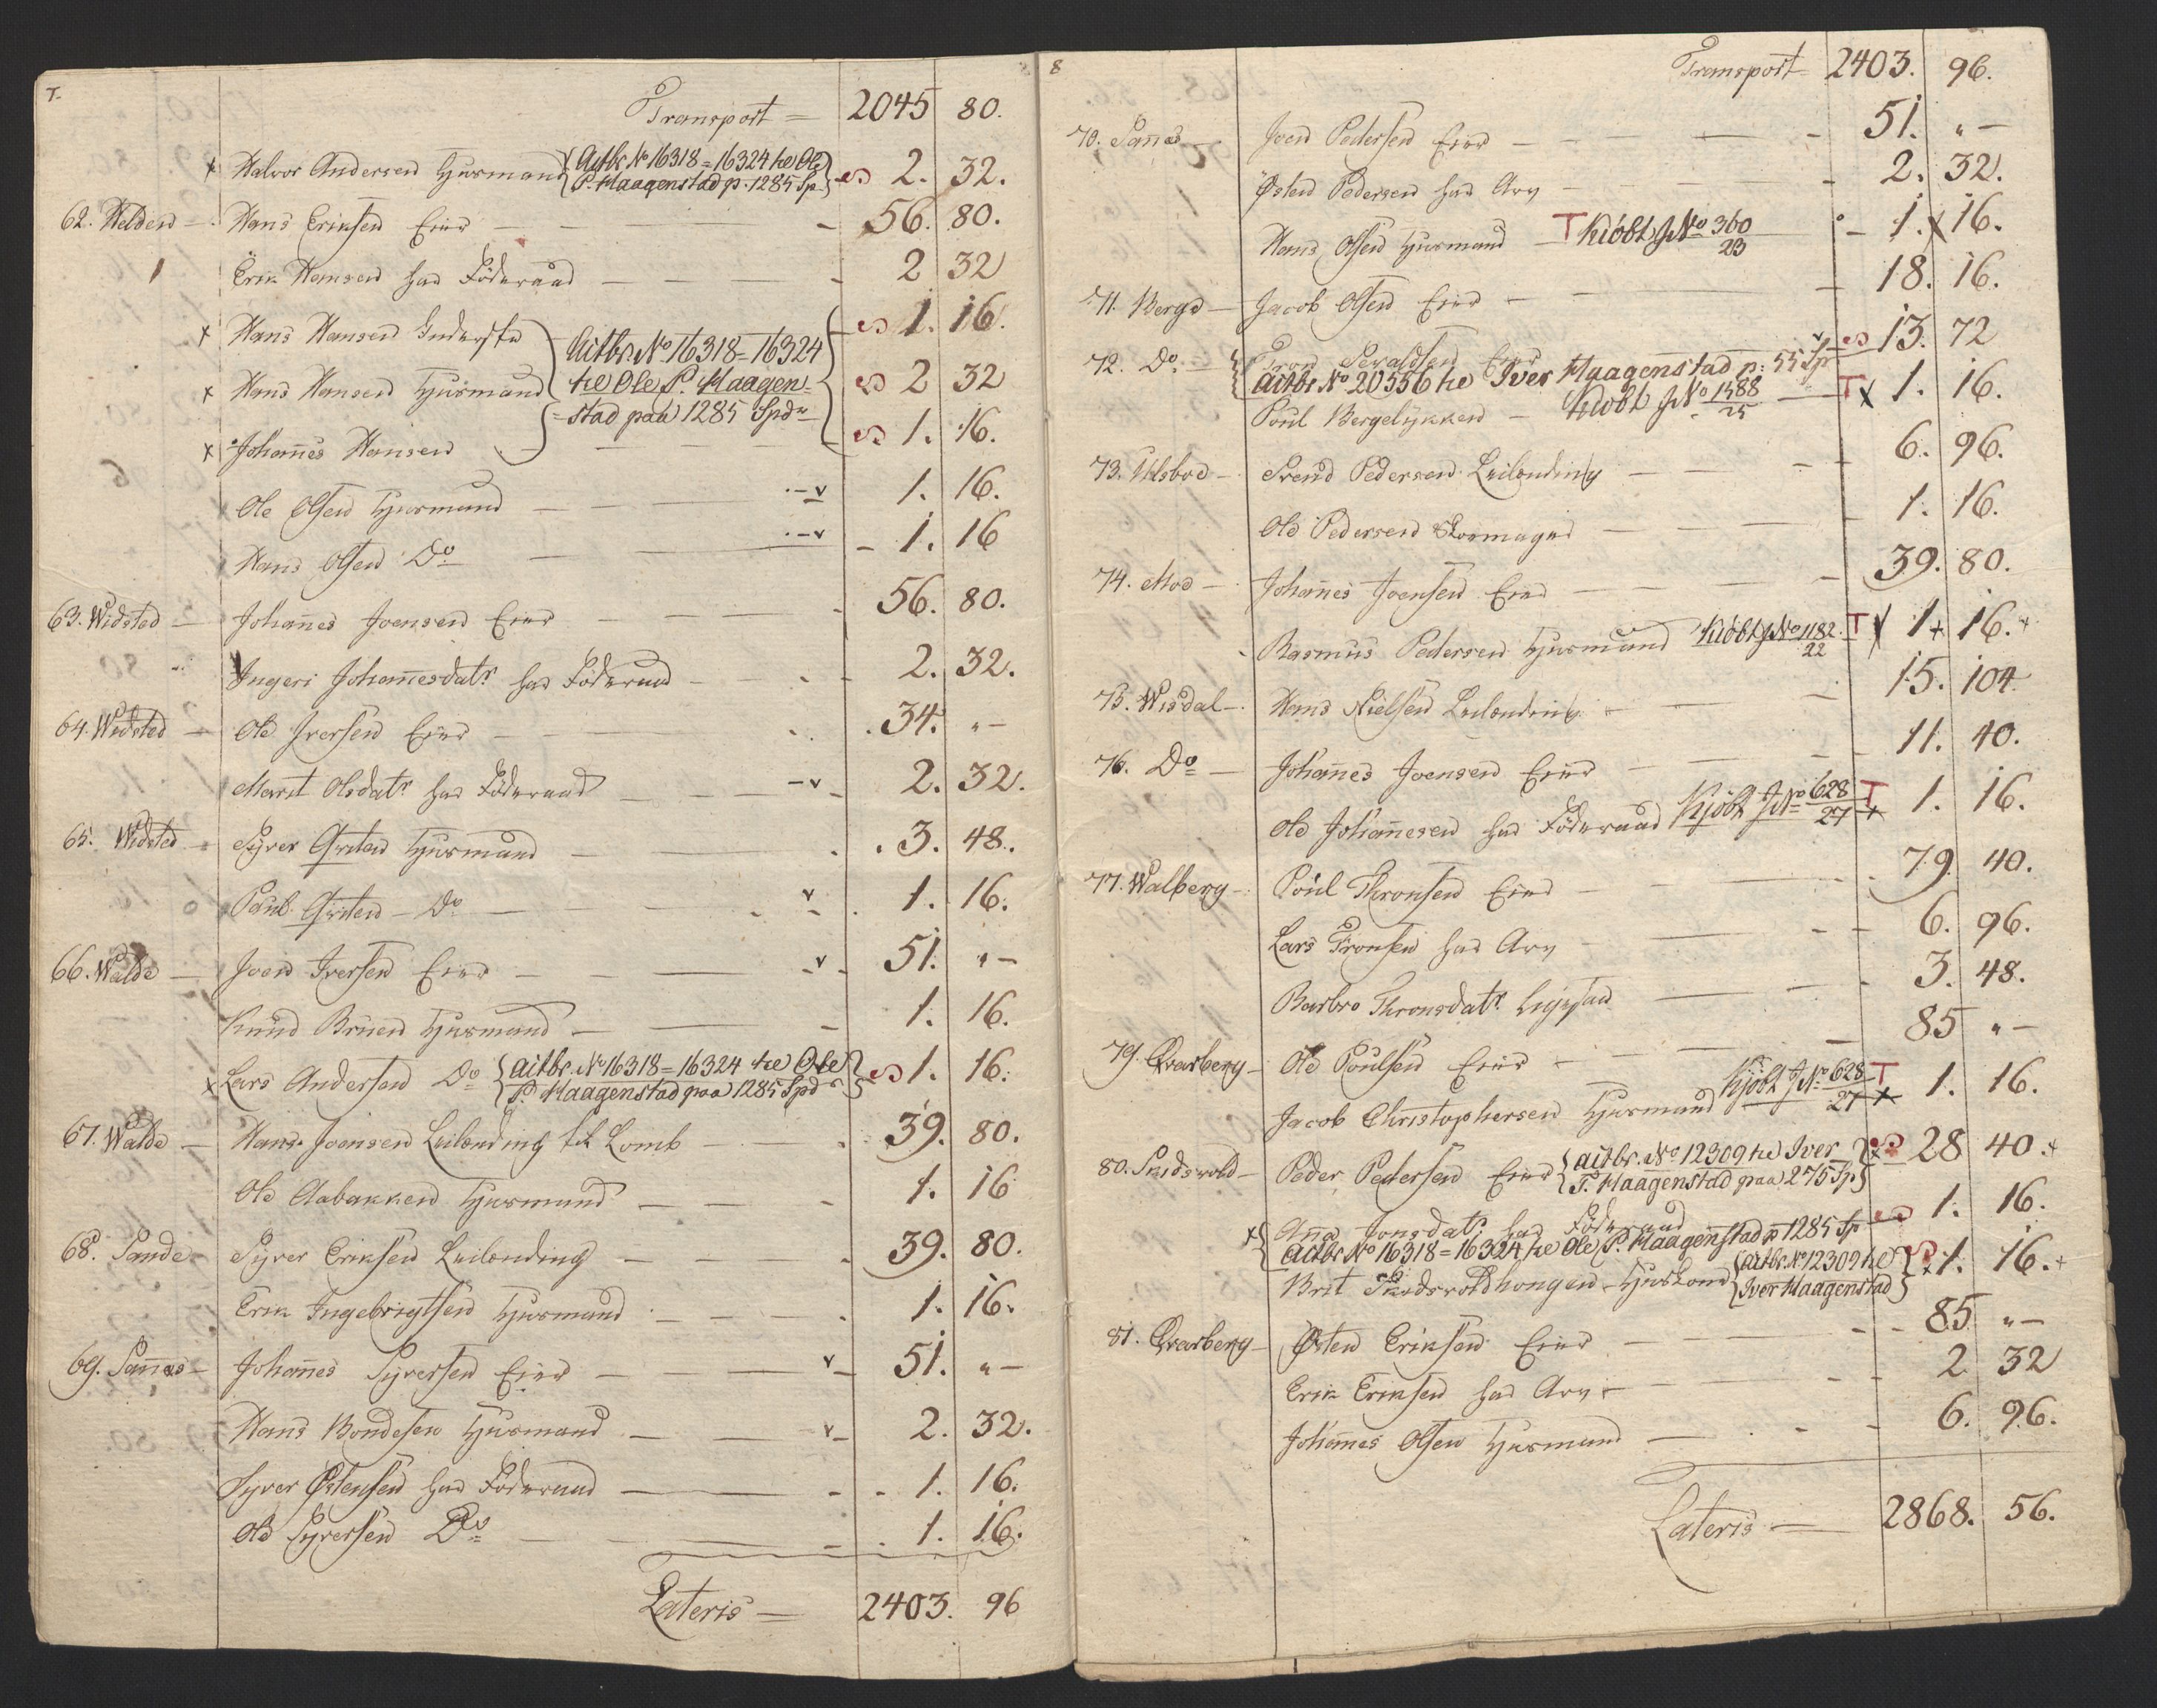 7.
Transport = 2045 80.
x Halvor Andersen Huusmand { Actbr. No 16318 = 16324 he Ole
P. Haagenstad p. 1285 Sp. } 2. 32.
62. Velden - Hans Eriksen Eier - 56. 80.
Erik Hansen har Föderaad - 2 32
x Hans Hansen Inderste 1. 16.
Actbr. No 16318 = 16324
x Hans Hansen Huusmand he Ole P. Haagen= 2 32
=stad paa 1285 Spdr
x Johannes Hansen 1. 16.
Ole Olsen Huusmand - 1. 16.
Hans Olsen Do - 1. 16
63. Widsted - Johannes Joensen Eier - 56. 80.
Ingeri Johannesdatr har Föderaad - 2. 32.
64. Widsted - Ole Iversen Eier - 34. " -
Marit Olsdatr har Föderaad - 2. 32.
65. Widsted - Syver Qviten Huusmand - 3. 48.
Paul Qviten - Do - 1. 16.
66. Walde - Joen Iversen Eier - 51. " -
Knud Bruen Huusmand - 1. 16.
x Lars Andersen Do { Actbr. No 16318 = 16324 he Ole
P. Haagenstad paa 1285 Spdr } 1. 16.
67. Walde - Hans Joensen Leilending til Lomb - 39. 80.
Ole Aabakken Huusmand - 1. 16
68. Sande - Syver Eriksen Leilending - 39. 80.
Erik Ingebrigtsen Huusmand - 1. 16.
69. Sannes - Johannes Syversen Eier - 51. " -
Hans Bondesen Huusmand - 2. 32.
Syver Østensen har Föderaad - 1. 16.
Ole Syversen Do - 1. 16.
Lateris = 2403. 96
8
Transport = 2403. 96.
70. Sannes - Joen Pedersen Eier - 51. " -
Østen Pedersen har Arv - 2. 32.
Hans Olsen Huusmand - T Kiöbt J No 360/23 - 1. x 16.
71. Berge - Jacob Olsen Eier - 18. 16.
72. Do - Tron Sevaldsen Eier - 13. 72
Actbr No 20556 he Iver Haagenstad p. 55 Sp
Poul Bergelykken - Kiöbt J No 1488/25 - T x 1. 16.
73. Ulsboe - Svend Pedersen Leilending - 6. 96.
Ole Pedersen Skormager - 1. 16.
74. Moe - Johannes Joensen Eier - 39. 80.
Rasmus Pedersen Huusmand Kiöbt J No 1182/22 T x 1 + 16. +
75. Wisdal - Hans Nielsen Leilending - 15. 104
76. Do - Johannes Joensen Eier - 11. 40.
Ole Johannesen har Föderaad Kjöbt J No 628/27 T + 1. 16.
77. Walberg - Poul Thronsen Eier - 79. 40.
Lars Tronsen har Arv - 6. 96.
Barbro Thronsdatr - 3. 48.
79. Qvarberg - Ole Poulsen Eier - 85 " -
Jacob Christophersen Huusmand Kjöbt J No 628/27 T x 1. 16.
80. Snidsvold - Peder Pedersen Eier { Actbr. No 12309 he Iver
P. Haagenstad paa 275 Sp } x 28 40. +
x { Anna Jonsdatr har Föderaad 1. 16.
Actbr No 16318 = 16324 he Ole P. Haagenstad p 1285 Sp
Brit Snidsvoldhougen Huuskone { Actbr. No 12309 he
Iver Haagenstad } x 1. 16. +
81. Qvarberg - Østen Eriksen Eier - 85 " -
Erik Eriksen har Arv - 2 32
Johannes Olsen Huusmand - 6. 96.
Lateris - 2868. 56.